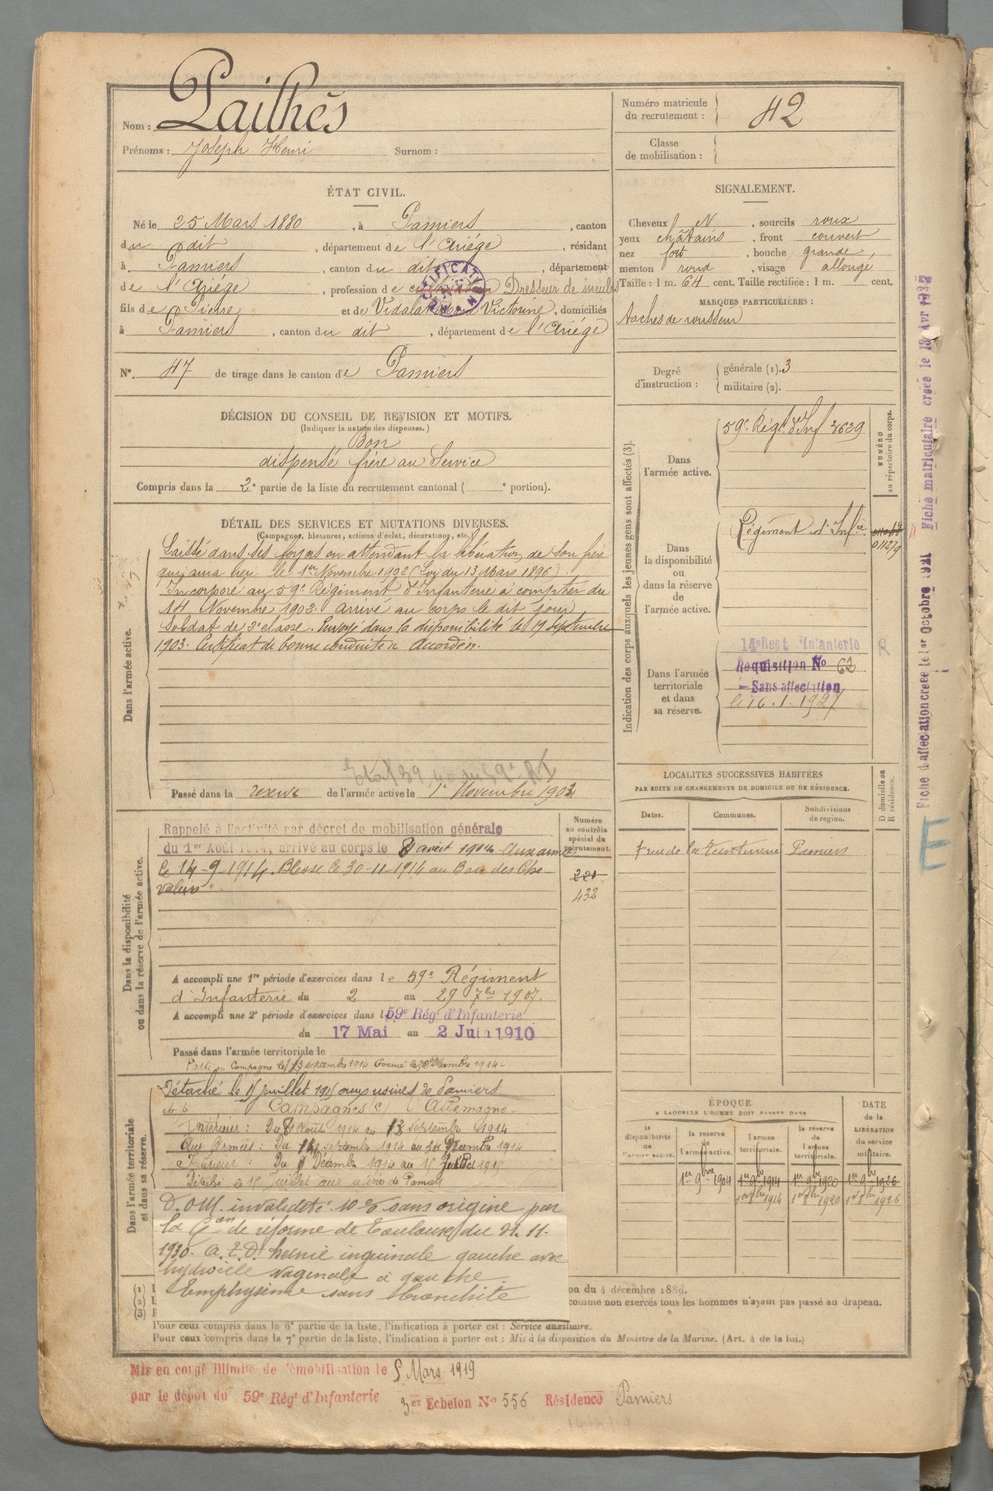 Nom : Pailhès
Prénoms : Joseph Henri Surnom :
Numéro matricule
du recrutement : 42
Classe
de mobilisation :
ÉTAT CIVIL.
Né le 25 Mars 1880, à Pamiers, canton
du dit, département de l'Ariége, résidant
à Pamiers, canton du dit, département
de l'Ariége, profession de Dresseur de
fils de Pierre et de Victorine, domiciliés
à Pamiers, canton du dit, département de l'Ariége
N° 47 de tirage dans le canton de Pamiers
SIGNALEMENT.
Cheveux N, sourcils roux
yeux châtains, front couvert
nez fort, bouche grande,
menton rond, visage allongé
Taille : 1 m. 64 cent. Taille rectifiée : 1 m. cent.
MARQUES PARTICULIÈRES :
Taches de rousseur
Degré
d'instruction :
générale (1). 3
militaire (2).
DÉCISION DU CONSEIL DE REVISION ET MOTIFS.
(Indiquer la nature des dispenses.)
Bon
dispensé frère au Service
Compris dans la 2e partie de la liste du recrutement cantonal ( e portion).
DÉTAIL DES SERVICES ET MUTATIONS DIVERSES.
(Campagnes, blessures, actions d'éclat, décorations, etc.)
Dans l'armée active.
Laissé dans ses foyers en attendant la libération de son frère
qui aura lieu le 1er Novembre 1902 (Loi du 13 Mars 1896).
Incorporé au 59e Régiment d'Infanterie à compter du
14 Novembre 1902. Arrivé au corps le dit jour,
Soldat de 2e classe. Envoyé dans la disponibilité le 19 Septembre
1903. Certificat de bonne conduite accordé.
Passé dans la réserve de l'armée active le 1er Novembre 1904
Indication des corps auxquels les jeunes gens sont affectés (3).
NUMÉRO
au répertoire du corps.
Dans
l'armée active.
59e Régt d'Inf 3629
Dans
la disponibilité
ou
dans la réserve
de
l'armée active.
Régiment d'Infie
Dans l'armée
territoriale
et dans
sa réserve.
14e Regt Infanterie
Requisition No 62
Sans affectation
le 16.1.1927
R
Fiche d'affectation creee le 1er Octobre 1921
Fiche matriculaire creee le
E
LOCALITES SUCCESSIVES HABITÉES
PAR SUITE DE CHANGEMENTS DE DOMICILE OU DE RÉSIDENCE.
D domicile ou
R résidence.
Dates. Communes. Subdivisions
de region.
7 rue de la Pamiers
Dans la disponibilité
ou dans la réserve de l'armée active.
Numéro
au contrôle
spécial du
recrutement.
Rappelé à l'activité par décret de mobilisation générale
du 1er Août 1914, arrivé au corps le 8 août 1914 Aux armées
le 14-9-1914. Blessé le 30-11-1914 au Bois des Che-
valiers
432
A accompli une 1re période d'exercices dans le 59e Régiment
d'Infanterie du 2 au 29 7bre 1907.
A accompli une 2e période d'exercices dans le 59e Régt d'Infanterie
du 17 Mai au 2 Juin 1910
Passé dans l'armée territoriale le
Dans l'armée territoriale
et dans sa réserve.
Détaché le 15 juillet aux usines de Pamiers
Campagnes c/ Allemagne
Intérieur : Du 8 août 1914 au 13 septembre 1914
Aux Armées : Du 14 septembre 1914 au
Intérieur : Du Décembre 1914 au 15 Juillet 1915
Détaché le 15 juillet aux usines de Pamiers
D.O.M. invalidité 10 % sans origine par
la Con de réforme de Toulouse du 21.11.
1930. A.T.D. hernie inguinale gauche avec
hydrocèle vaginale à gauche.
Emphysème sans bronchite
ÉPOQUE
A LAQUELLE L'HOMME DOIT PASSER DANS
DATE
de la
LIBÉRATION
du service
militaire.
la
disponibilité
de l'armée active.
la réserve
de
l'armée active.
l'armée
territoriale.
la réserve
de
l'armée
territoriale.
1er 9bre 1904 1er 9bre 1914 1er 9bre 1920 1er 9bre 1926
1er 8bre 1914 1er 8bre 1920 1er 8bre 1926
on du 4 décembre 1886.
comme non exercés tous les hommes n'ayant pas passé au drapeau.
Pour ceux compris dans la 6e partie de la liste, l'indication à porter est : Service auxiliaire.
Pour ceux compris dans la 7e partie de la liste, l'indication à porter est : Mis à la disposition du Ministre de la Marine. (Art. 4 de la loi.)
Mis en congé illimité de démobilisation le 5 Mars 1919
par le dépôt du 59e Régt d'Infanterie 3er Echelon No 556 Résidence Pamiers